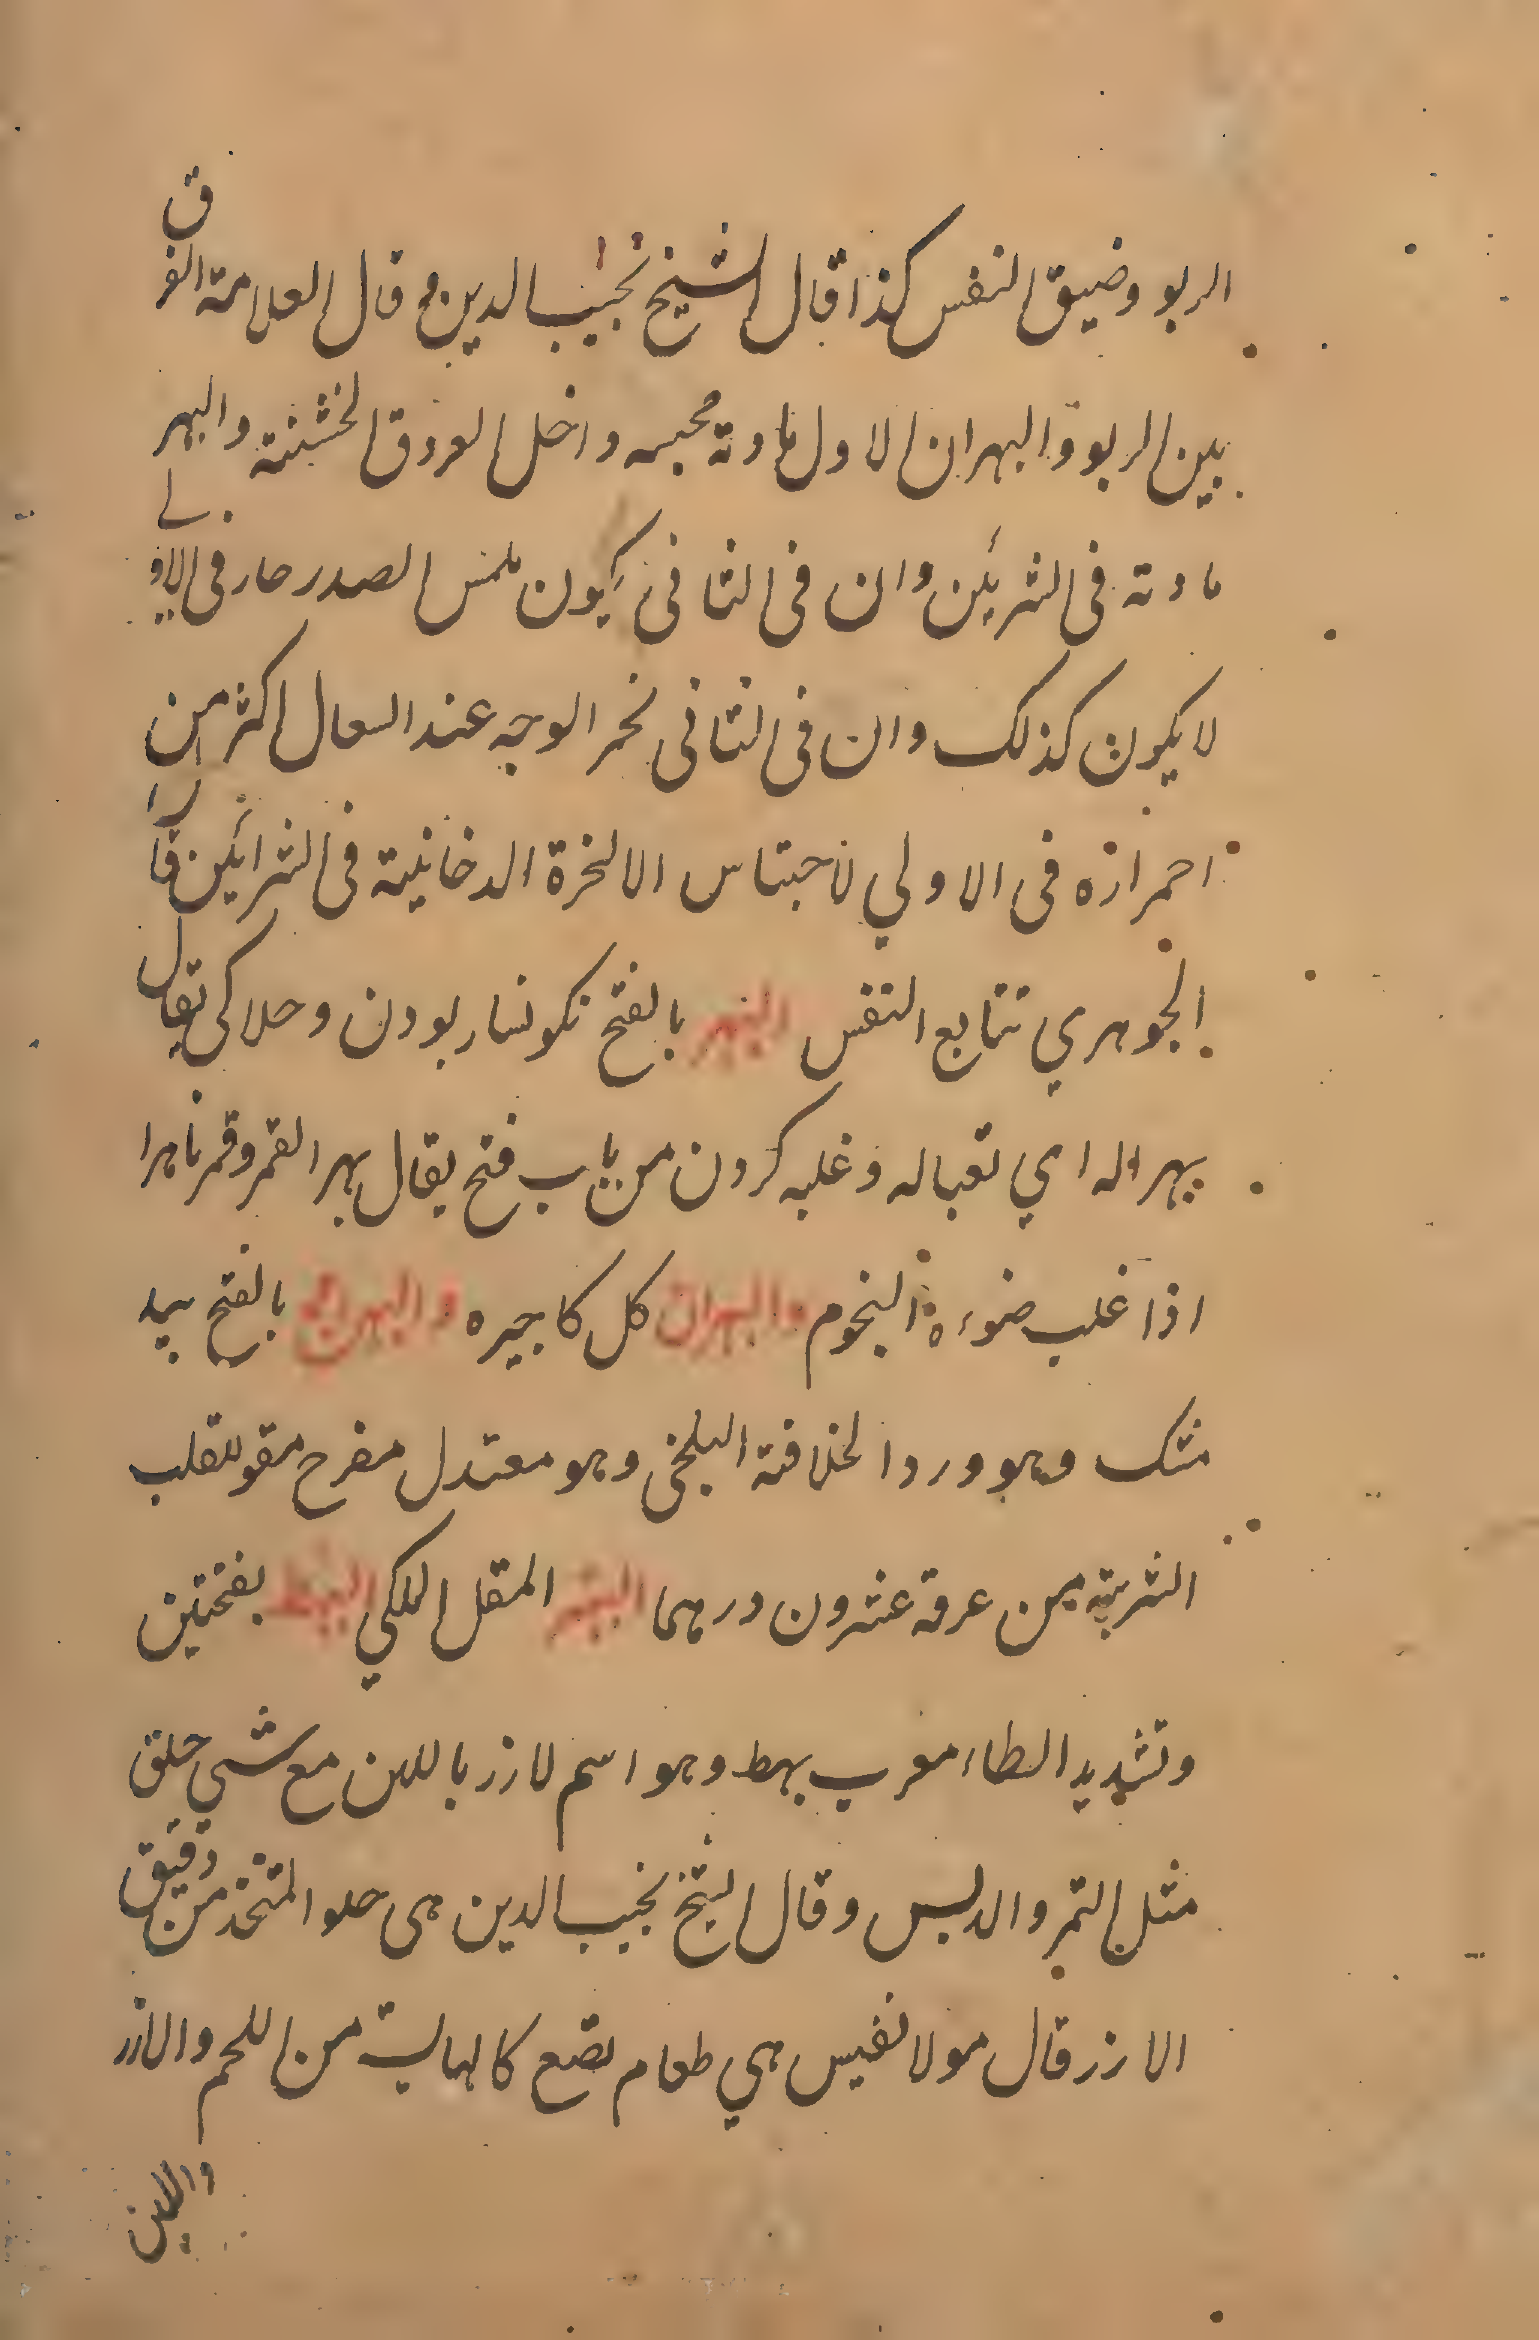 الربو وضيق النفس كذا قال الشيخ نجيب الدين و قال العلامة الفرق
بين الربو والبهر ان الاول مادته محبسه داخل العروق الخشنة والبهر
مادته فى الشرئين وان فى الثانى يكون ملمس الصدر حار فى الاولى
لا يكون كذلك وان فى الثانى نحمر الوجه عند السعال اكثر من
احمرازه فى الاولي لاحبتاس الالخرة الدخانية فى الشرائين قال
الجوهري تتابع النفس البهر بالفتح نكونسار بودن وحلاكى يقال
بهر اله اي تعباله و غلبه كردن من باب فتح يقال بهر القمر وقمر باهرا
اذا غلب ضوءه النجوم والبهران كل كاجيره والبهرامج بالفتح بيد
مشك وهو ورد الخلافة البلخى وهو معتدل مفرح مقو للقلب
الشربة من عرقه عشرون درهما البهر المقل المكي البهط بفتحتين
وتشديد الطاء معرب بهط وهو اسم لارز باللبن مع شي حلق
مثل التمر والدبس وقال الشيخ نجيب الدين هى حلو المتخذ من دقيق
الارز قال مولا نفيس هي طعام يصنع كالهالية من اللحم والارز
واللبن